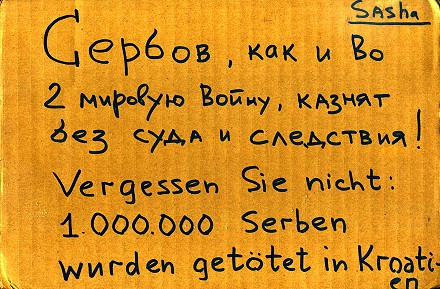 Sasha
Сербов, как и во
2 мировую войну, казнят
без суда и следствия!
Vergessen Sie nicht:
1.000.000 Serben
wurden getötet in Kroati-
en